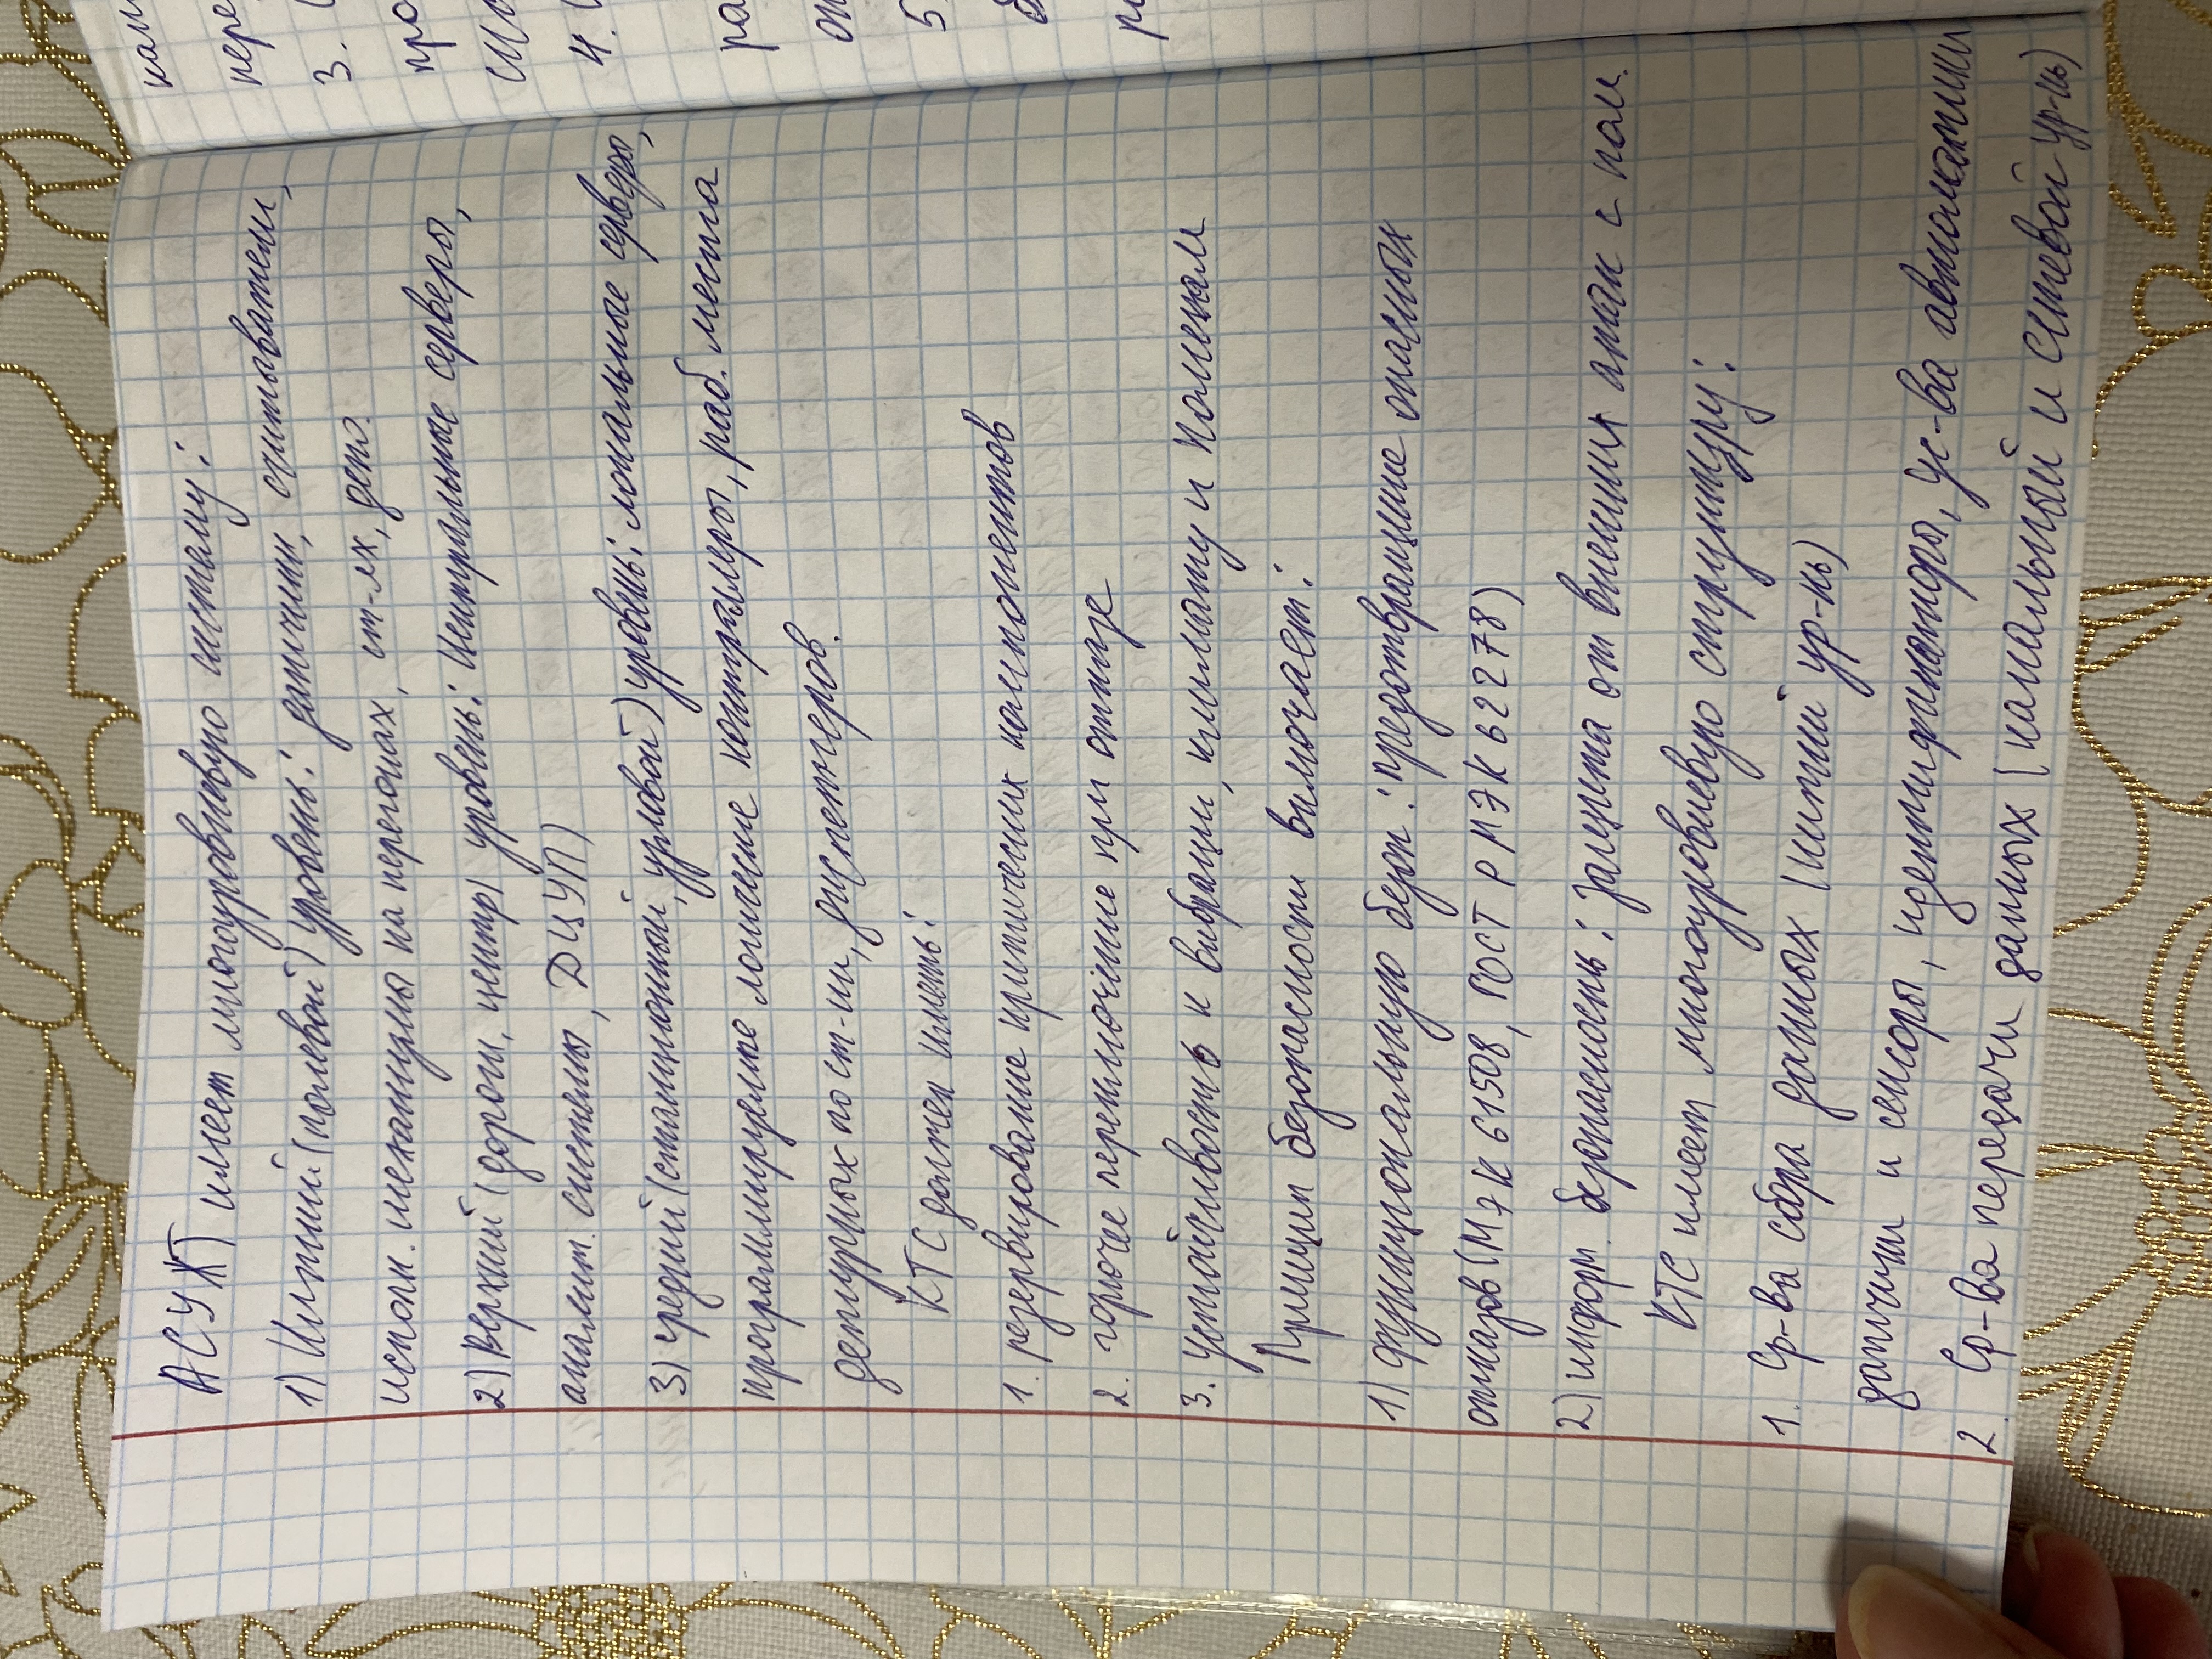 АСУЖТ имеет многоуровневую систему:
1) Нижний (полевой) уровень: датчики, считыватели,
исполн. механизмы на перегонах, ст-ях, депо.
2) Верхний (дороги, центр) уровень: Центральные серверы,
аналит. системы, ДЦУП)
3) средний (станционный, узловой) уровень: локальные сервера,
программируемые логические контроллеры, раб. места
дежурных по ст-ии, диспетчеров.
КТС должен иметь:
1. резервирование критических компонентов
2. горючее переключение при отказе
3. устойчивость к вибрации, климату и помехам
Принцип безопасности включает:
1) функциональную безоп.: предотвращение опасных
отказов (МЭК 61508, ГОСТ Р МЭК 62278)
2) информ. безопасность: Защита от внешних атак с пом.
КТС имеет многоуровневую структуру:
1. Ср-ва сбора данных (нижний ур-нь)
датчики и сенсоры, идентификаторы, ус-ва автоматики
2. Ср-ва передачи данных (канальный и сетевой ур-нь)
кам
пере
3. (
про
4. (
ра
от
5.